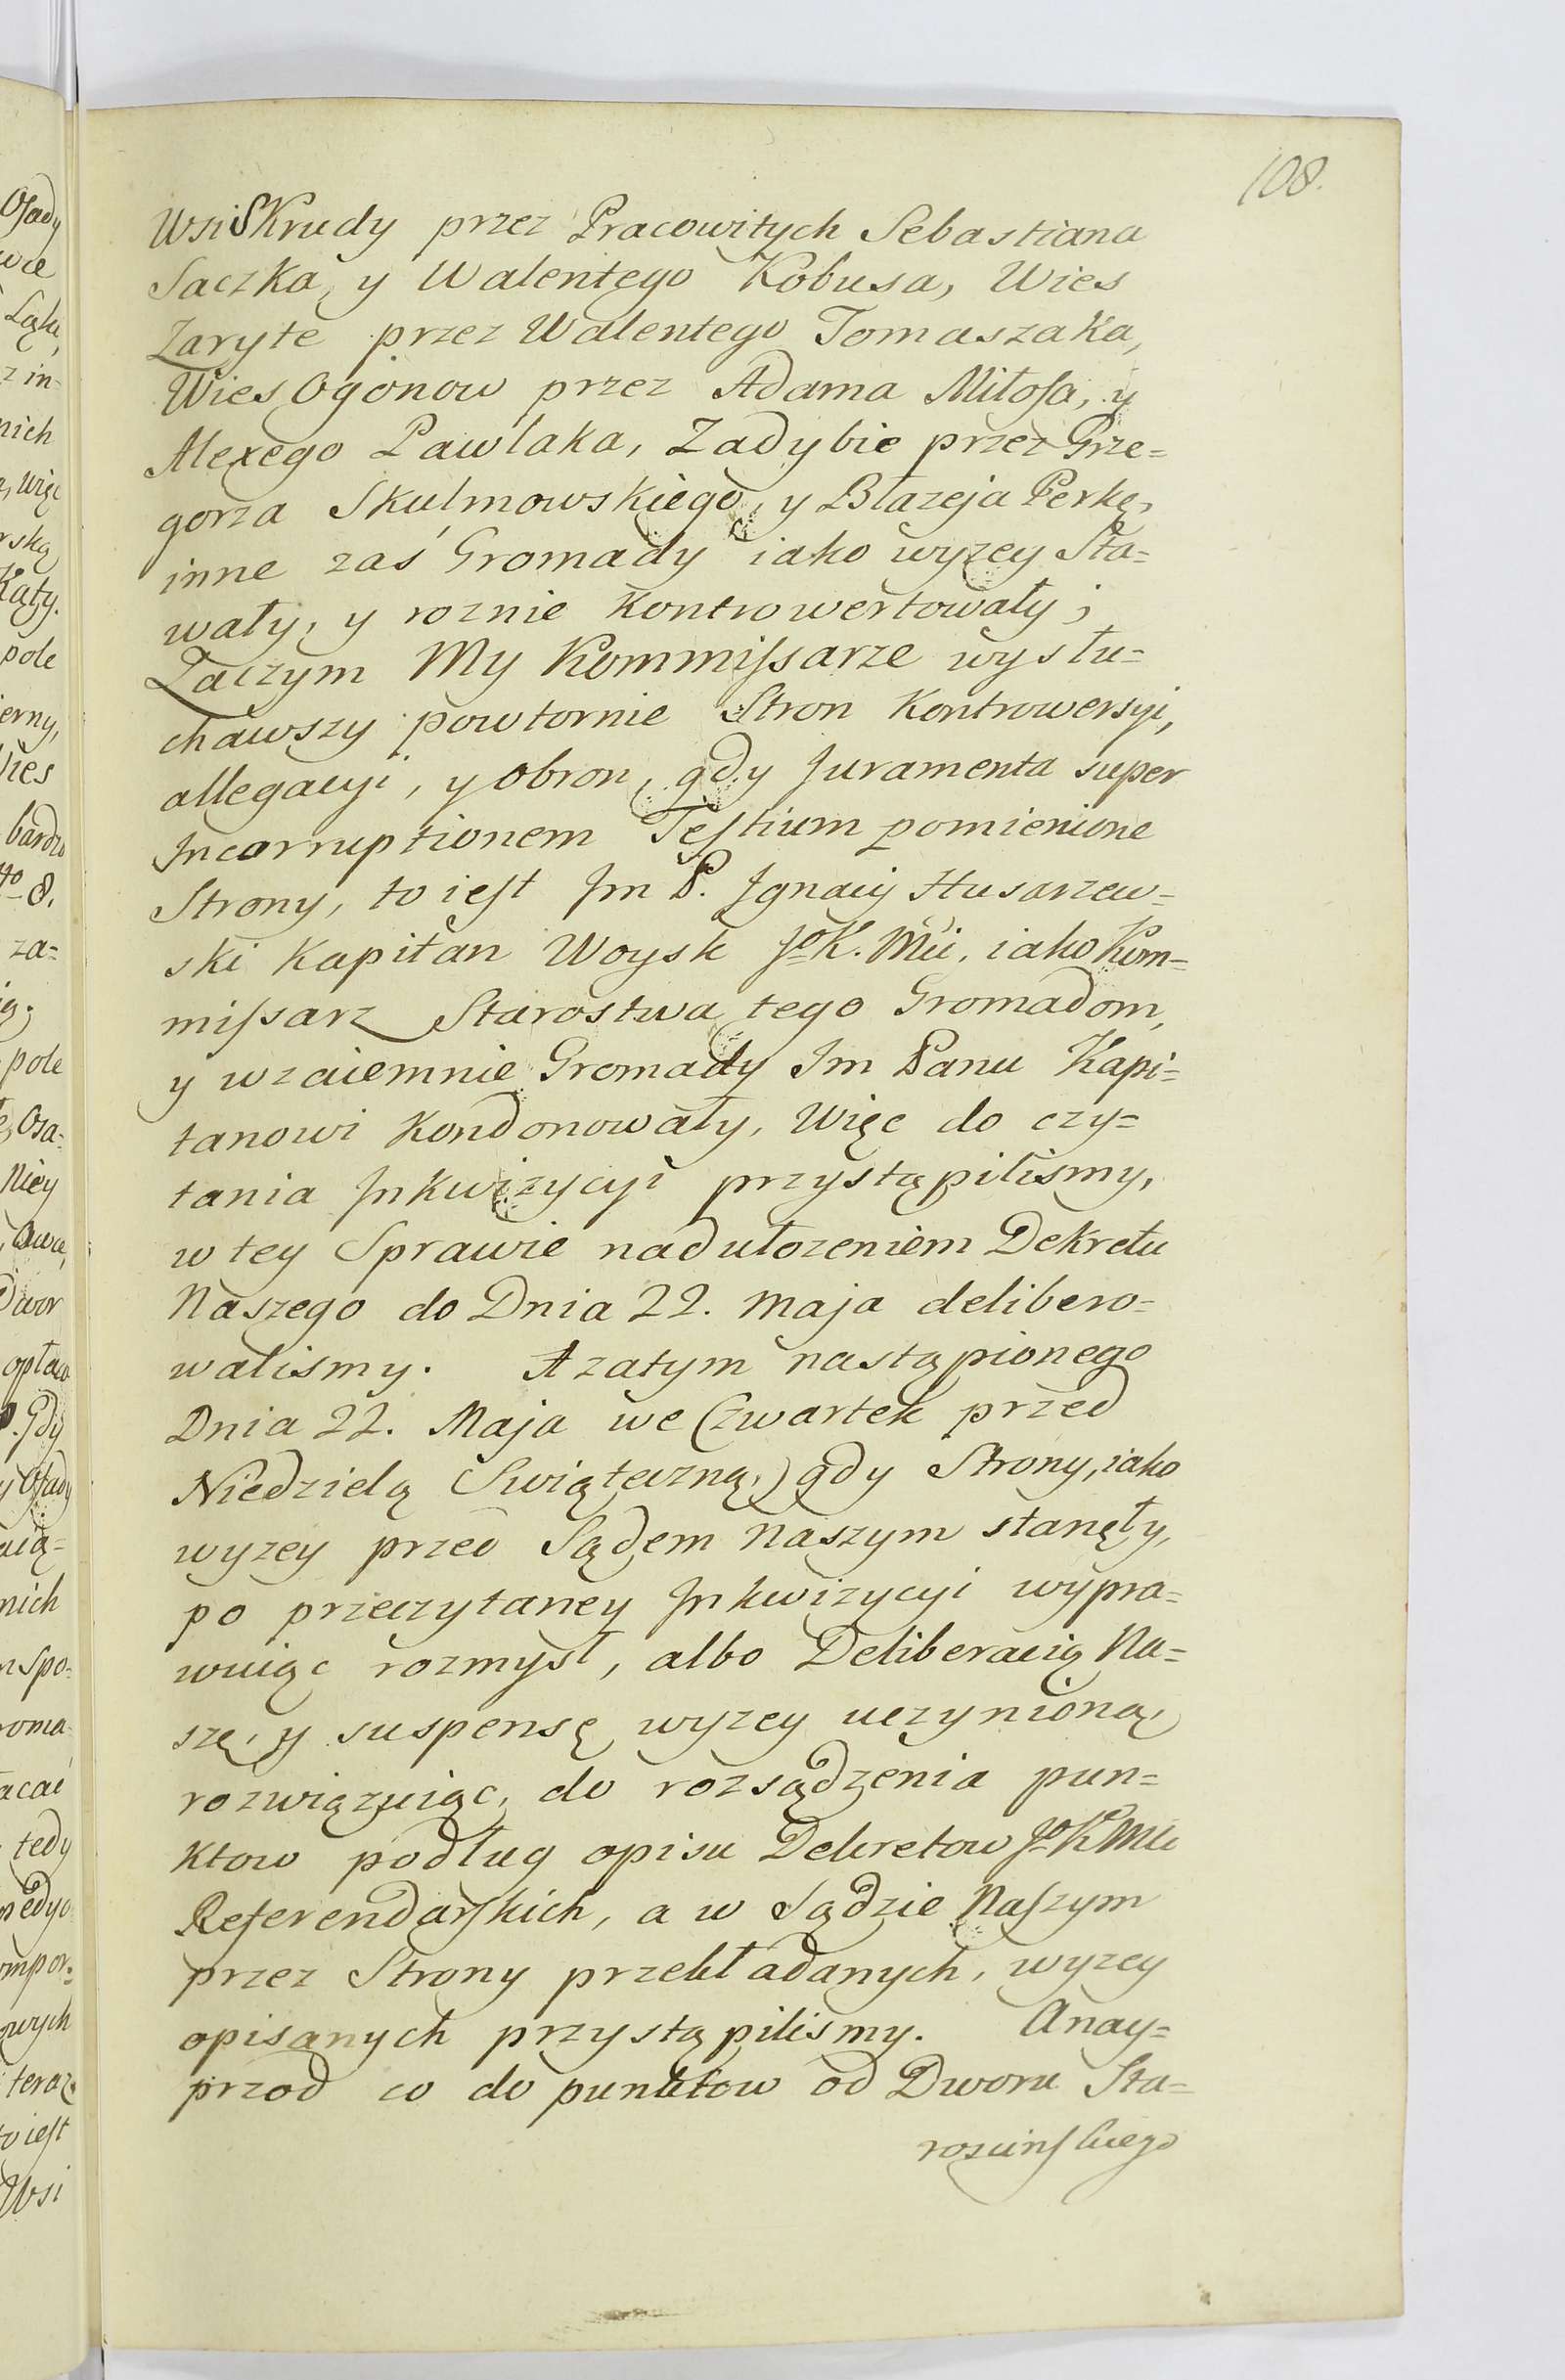 108.
Wsi Skrudy przez Pracowitych Sebastiana
Saczka, y Walentego Kobusa, Wies
Zaryte przez Walentego Tomaszaka,
Wies Ogonow przez Adama Miłosa, y
Alexego Pawlaka, Zadybie przez Grze=
gorza Skulmowskiego, y Błazeja Perkę,
inne zaś Gromady iako wyzey Sta=
wały, y roznie Kontrowertowały;
Zaczym My Kommissarze wysłu=
chawszy powtornie Stron Kontrowersyi,
allegacyi, y obron, gdy Juramenta super
Incorruptionem Testium pomienione
Strony, to iest Jm P. Ignacy Husarzew=
ski Kapitan Woysk Jo K. Mci, iako Kom=
missarz Starostwa tego Gromadom,
y wzaiemnie Gromady Jm Panu Kapi=
tanowi Kondonowały, Więc do czy=
tania Inkwizycyi przystąpilismy,
w tey Sprawie nad ułozeniem Dekretu
Naszego do Dnia 22. Maja delibero=
walismy. A zatym nastąpionego
Dnia 22. Maja we Czwartek przed
Niedzielą Swiąteczną, gdy Strony, iako
wyzey przed Sądem Naszym stanęły,
po przeczytaney Inkwizycyi wypra=
wuiąc rozmysł, albo Deliberacią Na=
szę, y suspensę wyzey uczynioną,
rozwięzuiąc, do rozsądzenia pun=
ktow podług opisu Dekretow Jo K Mci
Referendarskich, a w Sądzie Naszym
przez Strony przekładanych, wyzey
opisanych przystąpilismy. A nay=
przod co do punktow od Dworu Sta=
roscinskiego